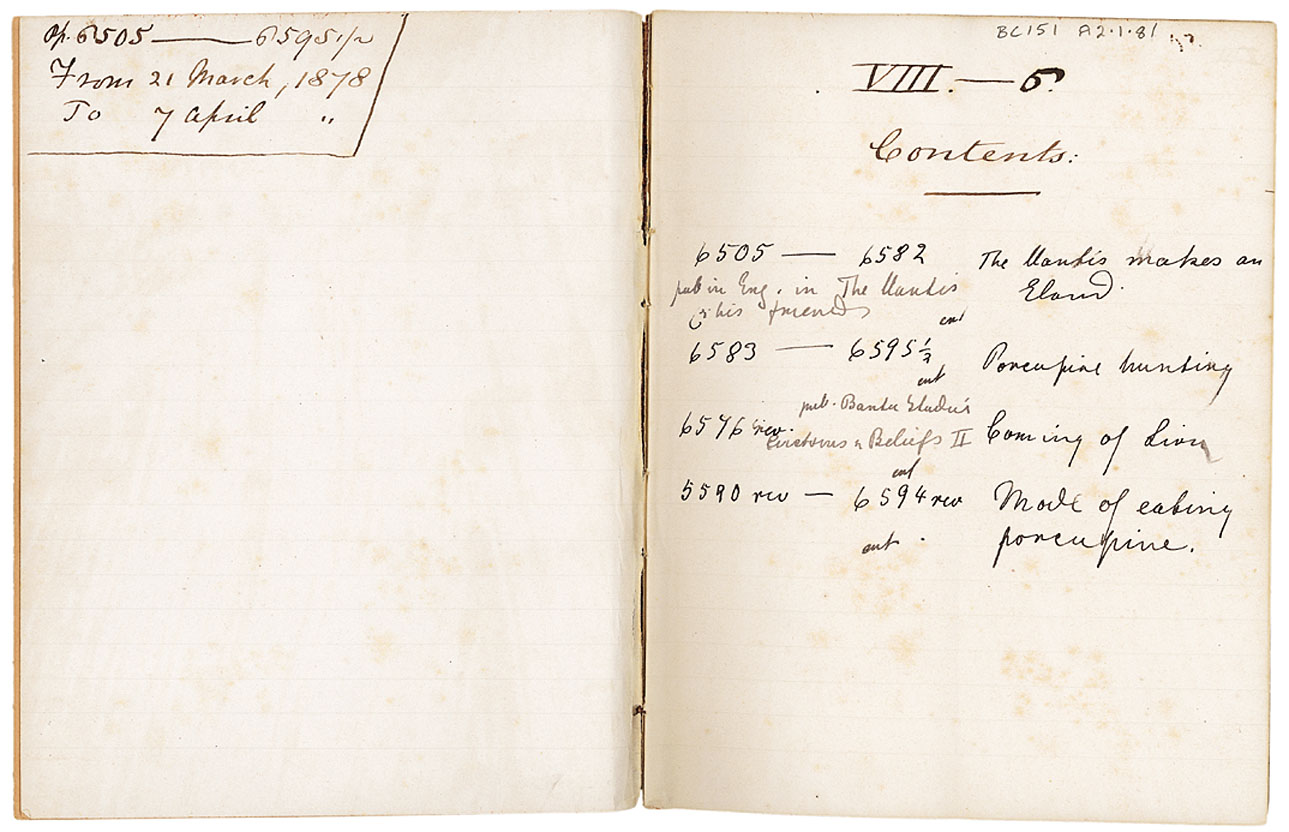 pp. 6505 — 6595 1/2
From 21 March, 1878
To 7 April "
BC151 A2.1.81
VIII. — 5.
Contents:
6505 — 6582 The Mantis makes an
Eland.
pub in Eng. in The Mantis
& his friends
cut
6583 — 6595 1/2 Porcupine hunting
cut
pub. Bantu Studies
6576 rev. Customs & Beliefs II Coming of Lion
cut
5590 rev — 6594 rev Mode of eating
porcupine.
cut.